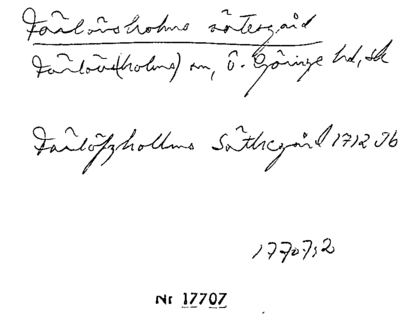 Färlövsholms sätesgård
Färlövs(holms) sn, Ö. Göinge hd, Sk
Färlöfzhollms Säthegård 1712 Jb
17707,2
Nr 17707